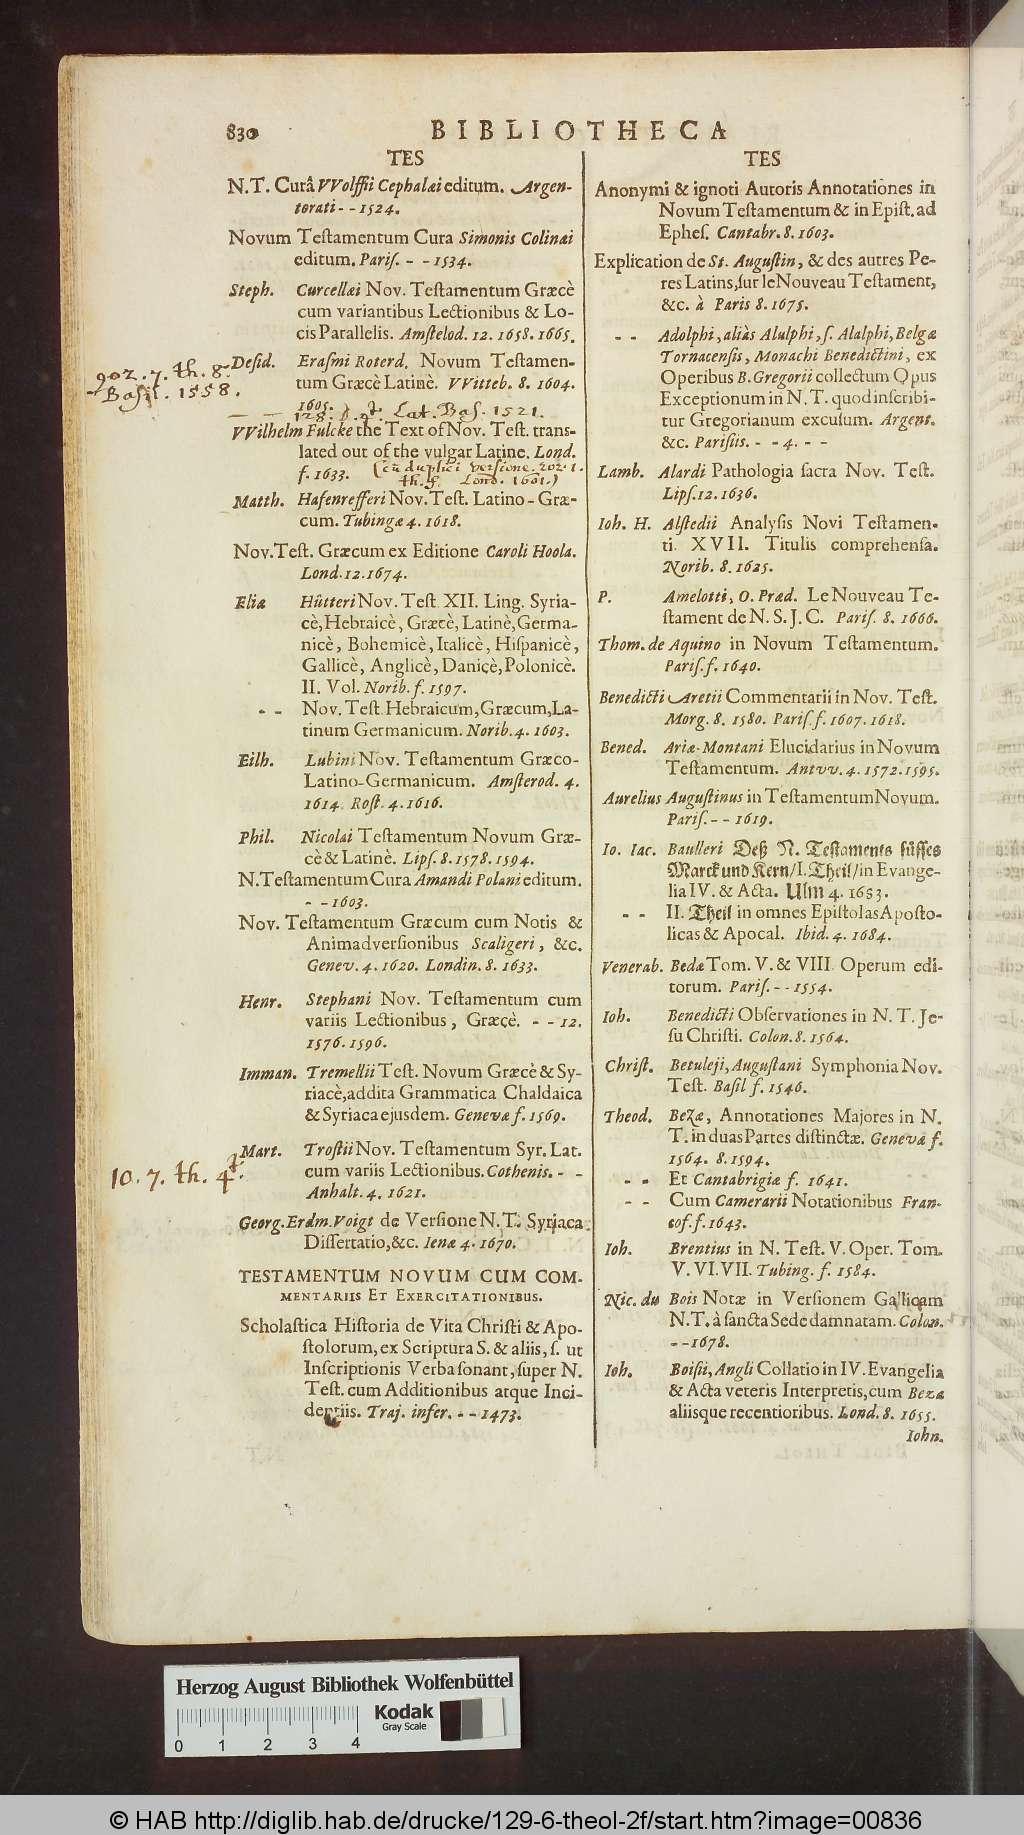 830 BIBLIOTHECA
TES
N.T. Curâ VVolffii Cephalæi editum. Argen-
torati - - 1524.
Novum Testamentum Cura Simonis Colinæi
editum. Paris. - - 1534.
Steph. Curcellæi Nov. Testamentum Græcè
cum variantibus Lectionibus & Lo-
cis Parallelis. Amstelod. 12. 1658. 1665.
902. 7. th. 8.
Basil. 1558.
Desid. Erasmi Roterd. Novum Testamen-
tum Græcè Latinè. VVitteb. 8. 1604.
1605.
128. Lat. Bas. 1521.
VVilhelm Fulcke the Text of Nov. Test. trans-
lated out of the vulgar Latine. Lond.
f. 1633. (cū duplici versione. 202. 1.
th. f. Lond. 1601.)
Matth. Hafenrefferi Nov. Test. Latino-Græ-
cum. Tubingæ 4. 1618.
Nov. Test. Græcum ex Editione Caroli Hoola.
Lond. 12. 1674.
Eliæ Hûtteri Nov. Test. XII. Ling. Syria-
cè, Hebraicè, Græcè, Latinè, Germa-
nicè, Bohemicè, Italicè, Hispanicè,
Gallicè, Anglicè, Danicè, Polonicè.
II. Vol. Norib. f. 1597.
- - Nov. Test. Hebraicum, Græcum, La-
tinum Germanicum. Norib. 4. 1603.
Eilh. Lubini Nov. Testamentum Græco-
Latino-Germanicum. Amsterod. 4.
1614. Rost. 4. 1616.
Phil. Nicolai Testamentum Novum Græ-
cè & Latinè. Lips. 8. 1578. 1594.
N. Testamentum Cura Amandi Polani editum.
- - 1603.
Nov. Testamentum Græcum cum Notis &
Animadversionibus Scaligeri, &c.
Genev. 4. 1620. Londin. 8. 1633.
Henr. Stephani Nov. Testamentum cum
variis Lectionibus, Græcè. - - 12.
1576. 1596.
Imman. Tremellii Test. Novum Græcè & Sy-
riacè, addita Grammatica Chaldaica
& Syriaca ejusdem. Genevæ f. 1569.
10. 7. th. 4t.
Mart. Trostii Nov. Testamentum Syr. Lat.
cum variis Lectionibus. Cothenis. - -
Anhalt. 4. 1621.
Georg. Erdm. Voigt de Versione N.T. Syriaca
Dissertatio, &c. Ienæ 4. 1670.
TESTAMENTUM NOVUM CUM COM-
MENTARIIS ET EXERCITATIONIBUS.
Scholastica Historia de Vita Christi & Apo-
stolorum, ex Scriptura S. & aliis, s. ut
Inscriptionis Verba sonant, super N.
Test. cum Additionibus atque Inci-
dentiis. Traj. infer. - - 1473.
TES
Anonymi & ignoti Autoris Annotationes in
Novum Testamentum & in Epist. ad
Ephes. Cantabr. 8. 1603.
Explication de St. Augustin, & des autres Pe-
res Latins, sur le Nouveau Testament,
&c. à Paris 8. 1675.
- - Adolphi, aliàs Alulphi, s. Alalphi, Belgæ
Tornacensis, Monachi Benedictini, ex
Operibus B. Gregorii collectum Opus
Exceptionum in N.T. quod inscribi-
tur Gregorianum exculum. Argent.
&c. Parisiis. - - 4. - -
Lamb. Alardi Pathologia sacra Nov. Test.
Lips. 12. 1636.
Ioh. H. Alstedii Analysis Novi Testamen-
ti XVII. Titulis comprehensa.
Norib. 8. 1625.
P. Amelotti, O. Præd. Le Nouveau Te-
stament de N. S. J. C. Paris. 8. 1666.
Thom. de Aquino in Novum Testamentum.
Paris. f. 1640.
Benedicti Aretii Commentarii in Nov. Test.
Morg. 8. 1580. Paris. f. 1607. 1618.
Bened. Ariæ-Montani Elucidarius in Novum
Testamentum. Antvv. 4. 1572. 1595.
Aurelius Augustinus in Testamentum Novum.
Paris. - - 1619.
Io. Iac. Baulleri Deß N. Testaments süsses
Marck und Kern/ I. Theil/ in Evange-
lia IV. & Acta. Ulm 4. 1683.
- - II. Theil in omnes Epistolas Aposto-
licas & Apocal. Ibid. 4. 1684.
Venerab. Bedæ Tom. V. & VIII. Operum edi-
torum. Paris. - - 1554.
Ioh. Benedicti Observationes in N. T. Je-
su Christi. Colon. 8. 1564.
Christ. Betuleji, Augustani Symphonia Nov.
Test. Basil f. 1546.
Theod. Bezæ, Annotationes Majores in N.
T. in duas Partes distinctæ. Genevæ f.
1564. 8. 1594.
- - Et Cantabrigiæ f. 1641.
- - Cum Camerarii Notationibus Fran-
cof. f. 1643.
Ioh. Brentius in N. Test. V. Oper. Tom.
V. VI. VII. Tubing. f. 1584.
Nic. du Bois Notæ in Versionem Gallicam
N.T. à sancta Sede damnatam. Colon.
- - 1678.
Ioh. Boisii, Angli Collatio in IV. Evangelia
& Acta veteris Interpretis, cum Beza
aliisque recentioribus. Lond. 8. 1655.
Iohn.
Herzog August Bibliothek Wolfenbüttel
Kodak
Gray Scale
0 1 2 3 4
© HAB http://diglib.hab.de/drucke/129-6-theol-2f/start.htm?image=00836